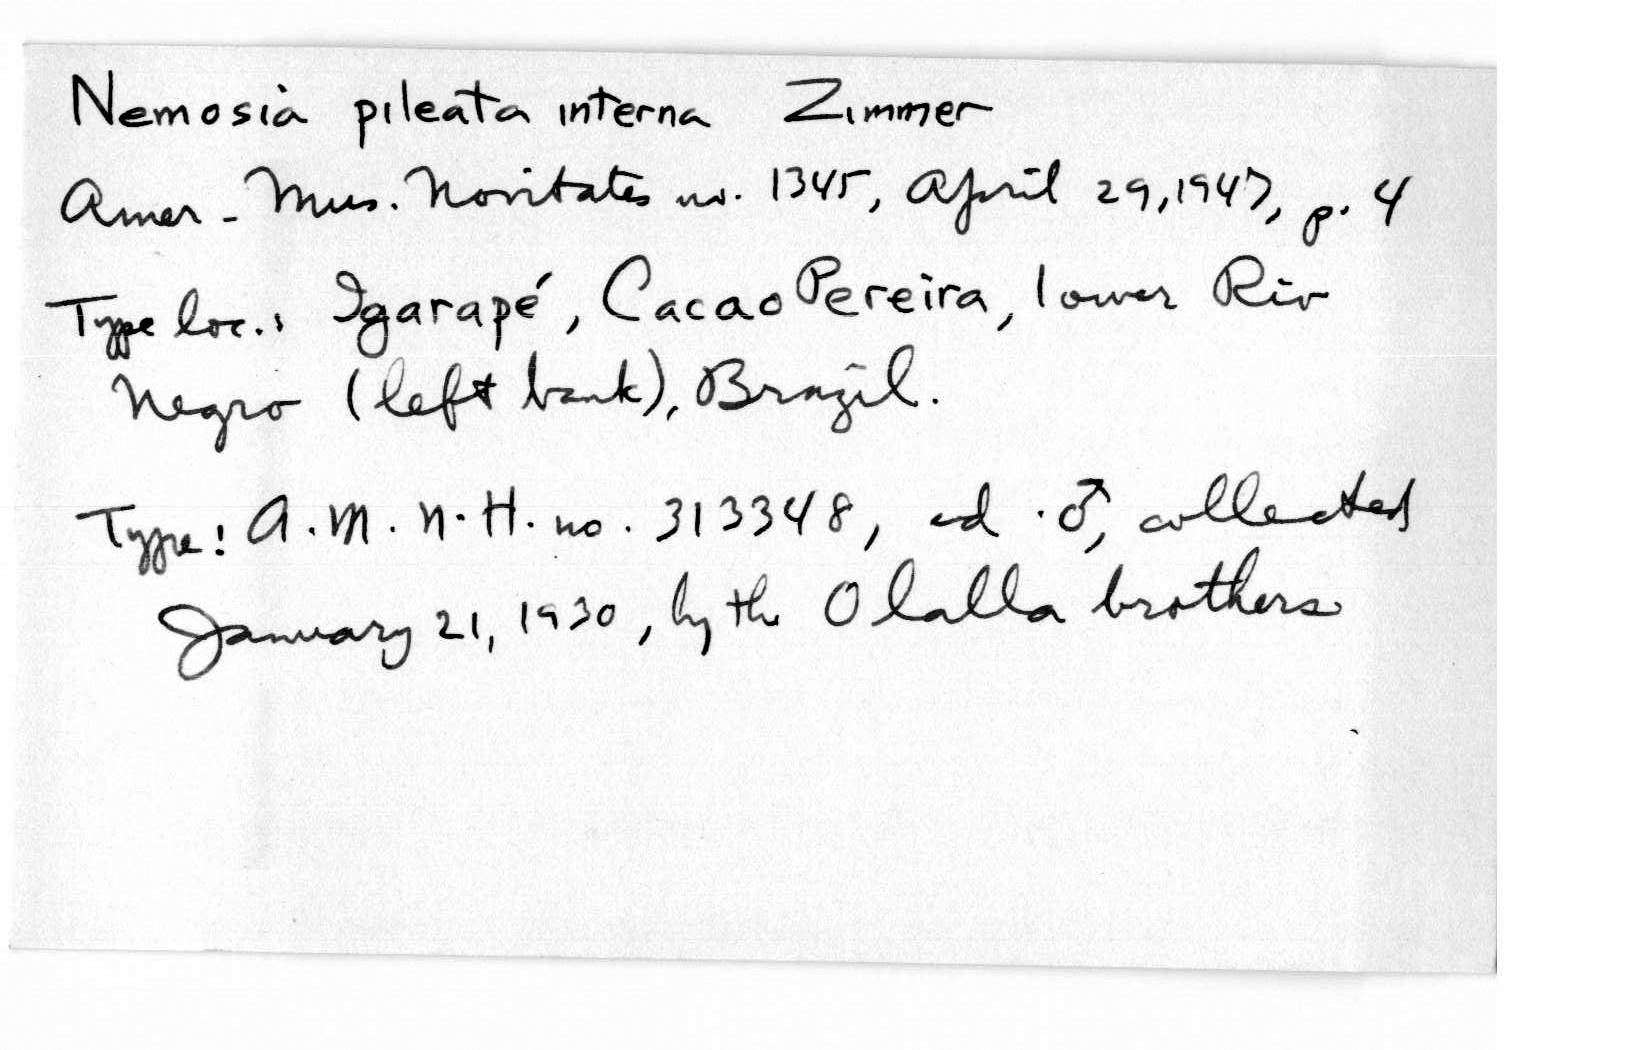 Nemosia pileata interna Zimmer
Amer. Mus. Novitates no. 1345, April 29, 1947, p. 4
Type loc.: Igarapé, Cacao Pereira, lower Rio
Negro (left bank), Brazil.
Type: A.M.N.H. no. 313348, ad. ♂, collected
January 21, 1930, by the Olalla brothers